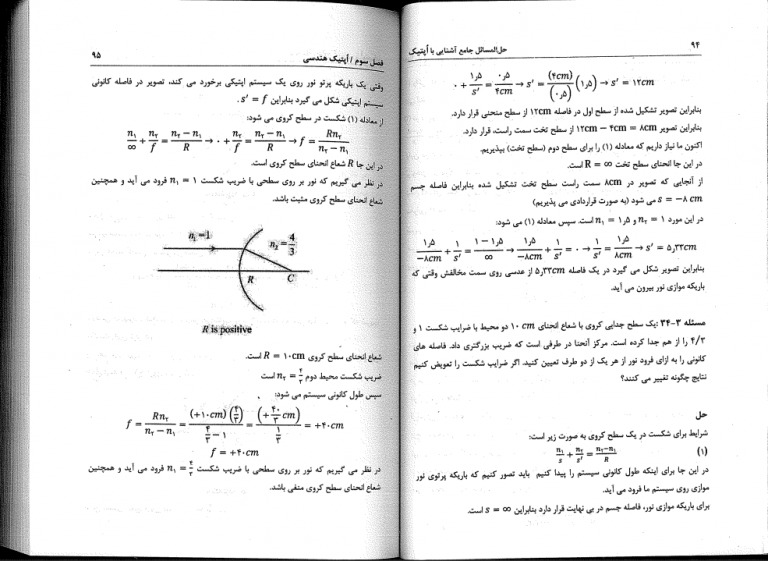 ۹۴
حل‌المسائل جامع آشنایی با اُپتیک
۰ + ۱٫۵/s′ = ۰٫۵/۴cm → s′ = (۴cm)/(۰٫۵) (۱٫۵) → s′ = ۱۲cm
بنابراین تصویر تشکیل شده از سطح اول در فاصله ۱۲cm از سطح منحنی قرار دارد.
بنابراین تصویر ۱۲cm − ۴cm = ۸cm از سطح تخت سمت راست، قرار دارد.
اکنون ما نیاز داریم که معادله (۱) را برای سطح دوم (سطح تخت) بپذیریم.
در این جا انحنای سطح تخت R = ∞ است.
از آنجایی که تصویر در ۸cm سمت راست سطح تخت تشکیل شده بنابراین فاصله جسم
s = −۸ cm می شود (به صورت قراردادی می پذیریم)
در این مورد n₂ = ۱ و n₁ = ۱٫۵ است. سپس معادله (۱) می شود:
۱٫۵/−۸cm + ۱/s′ = ۱ − ۱٫۵/∞ → ۱٫۵/−۸cm + ۱/s′ = ۰ → ۱/s′ = ۱٫۵/۸cm → s′ = ۵٫۳۳cm
بنابراین تصویر شکل می گیرد در یک فاصله ۵٫۳۳cm از عدسی روی سمت مخالفش وقتی که
باریکه موازی نور بیرون می آید.
مسئله ۳-۳۴ :یک سطح جدایی کروی با شعاع انحنای ۱۰ cm دو محیط با ضرایب شکست ۱ و
۴/۳ را از هم جدا کرده است. مرکز آنحنا در طرفی است که ضریب بزرگتری داد. فاصله های
کانونی را به ازای فرود نور از هر یک از دو طرف تعیین کنید. اگر ضرایب شکست را تعویض کنیم
نتایج چگونه تغییر می کنند؟
حل
شرایط برای شکست در یک سطح کروی به صورت زیر است:
n₁/s + n₂/s′ = n₂−n₁/R (۱)
در این جا برای اینکه طول کانونی سیستم را پیدا کنیم باید تصور کنیم که باریکه پرتوی نور
موازی روی سیستم ما فرود می آید.
برای باریکه موازی نور، فاصله جسم در بی نهایت قرار دارد بنابراین s = ∞ است.
فصل سوم / اُپتیک هندسی
۹۵
وقتی یک باریکه پرتو نور روی یک سیستم اپتیکی برخورد می کند، تصویر در فاصله کانونی
سیستم اپتیکی شکل می گیرد بنابراین s′ = f .
از معادله (۱) شکست در سطح کروی می شود:
n₁/∞ + n₂/f = n₂ − n₁/R → ۰ + n₂/f = n₂ − n₁/R → f = Rn₂/n₂ − n₁
در این جا R شعاع انحنای سطح کروی است.
در نظر می گیریم که نور بر روی سطحی با ضریب شکست n₁ = ۱ فرود می آید و همچنین
شعاع انحنای سطح کروی مثبت باشد.
n₁=1
n₂=4/3
R
C
R is positive
شعاع انحنای سطح کروی R = ۱۰cm است.
ضریب شکست محیط دوم n₂ = ۴/۳ است
سپس طول کانونی سیستم می شود:
f = Rn₂/n₂ − n₁ = (+۱۰cm)(۴/۳)/۴/۳ − ۱ = (+۴۰/۳ cm)/۱/۳ = +۴۰cm
f = +۴۰cm
در نظر می گیریم که نور بر روی سطحی با ضریب شکست n₁ = ۴/۳ فرود می آید و همچنین
شعاع انحنای سطح کروی منفی باشد.